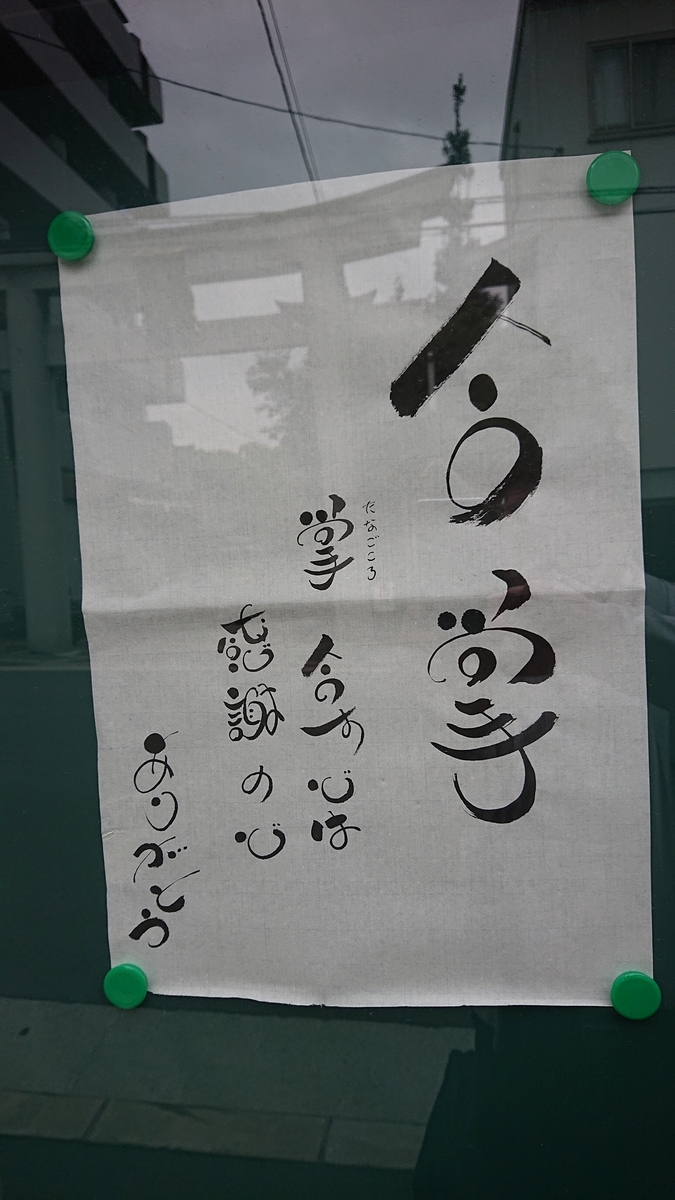 合掌
たなごころ
掌 合わす心は
感謝の心
ありがとう